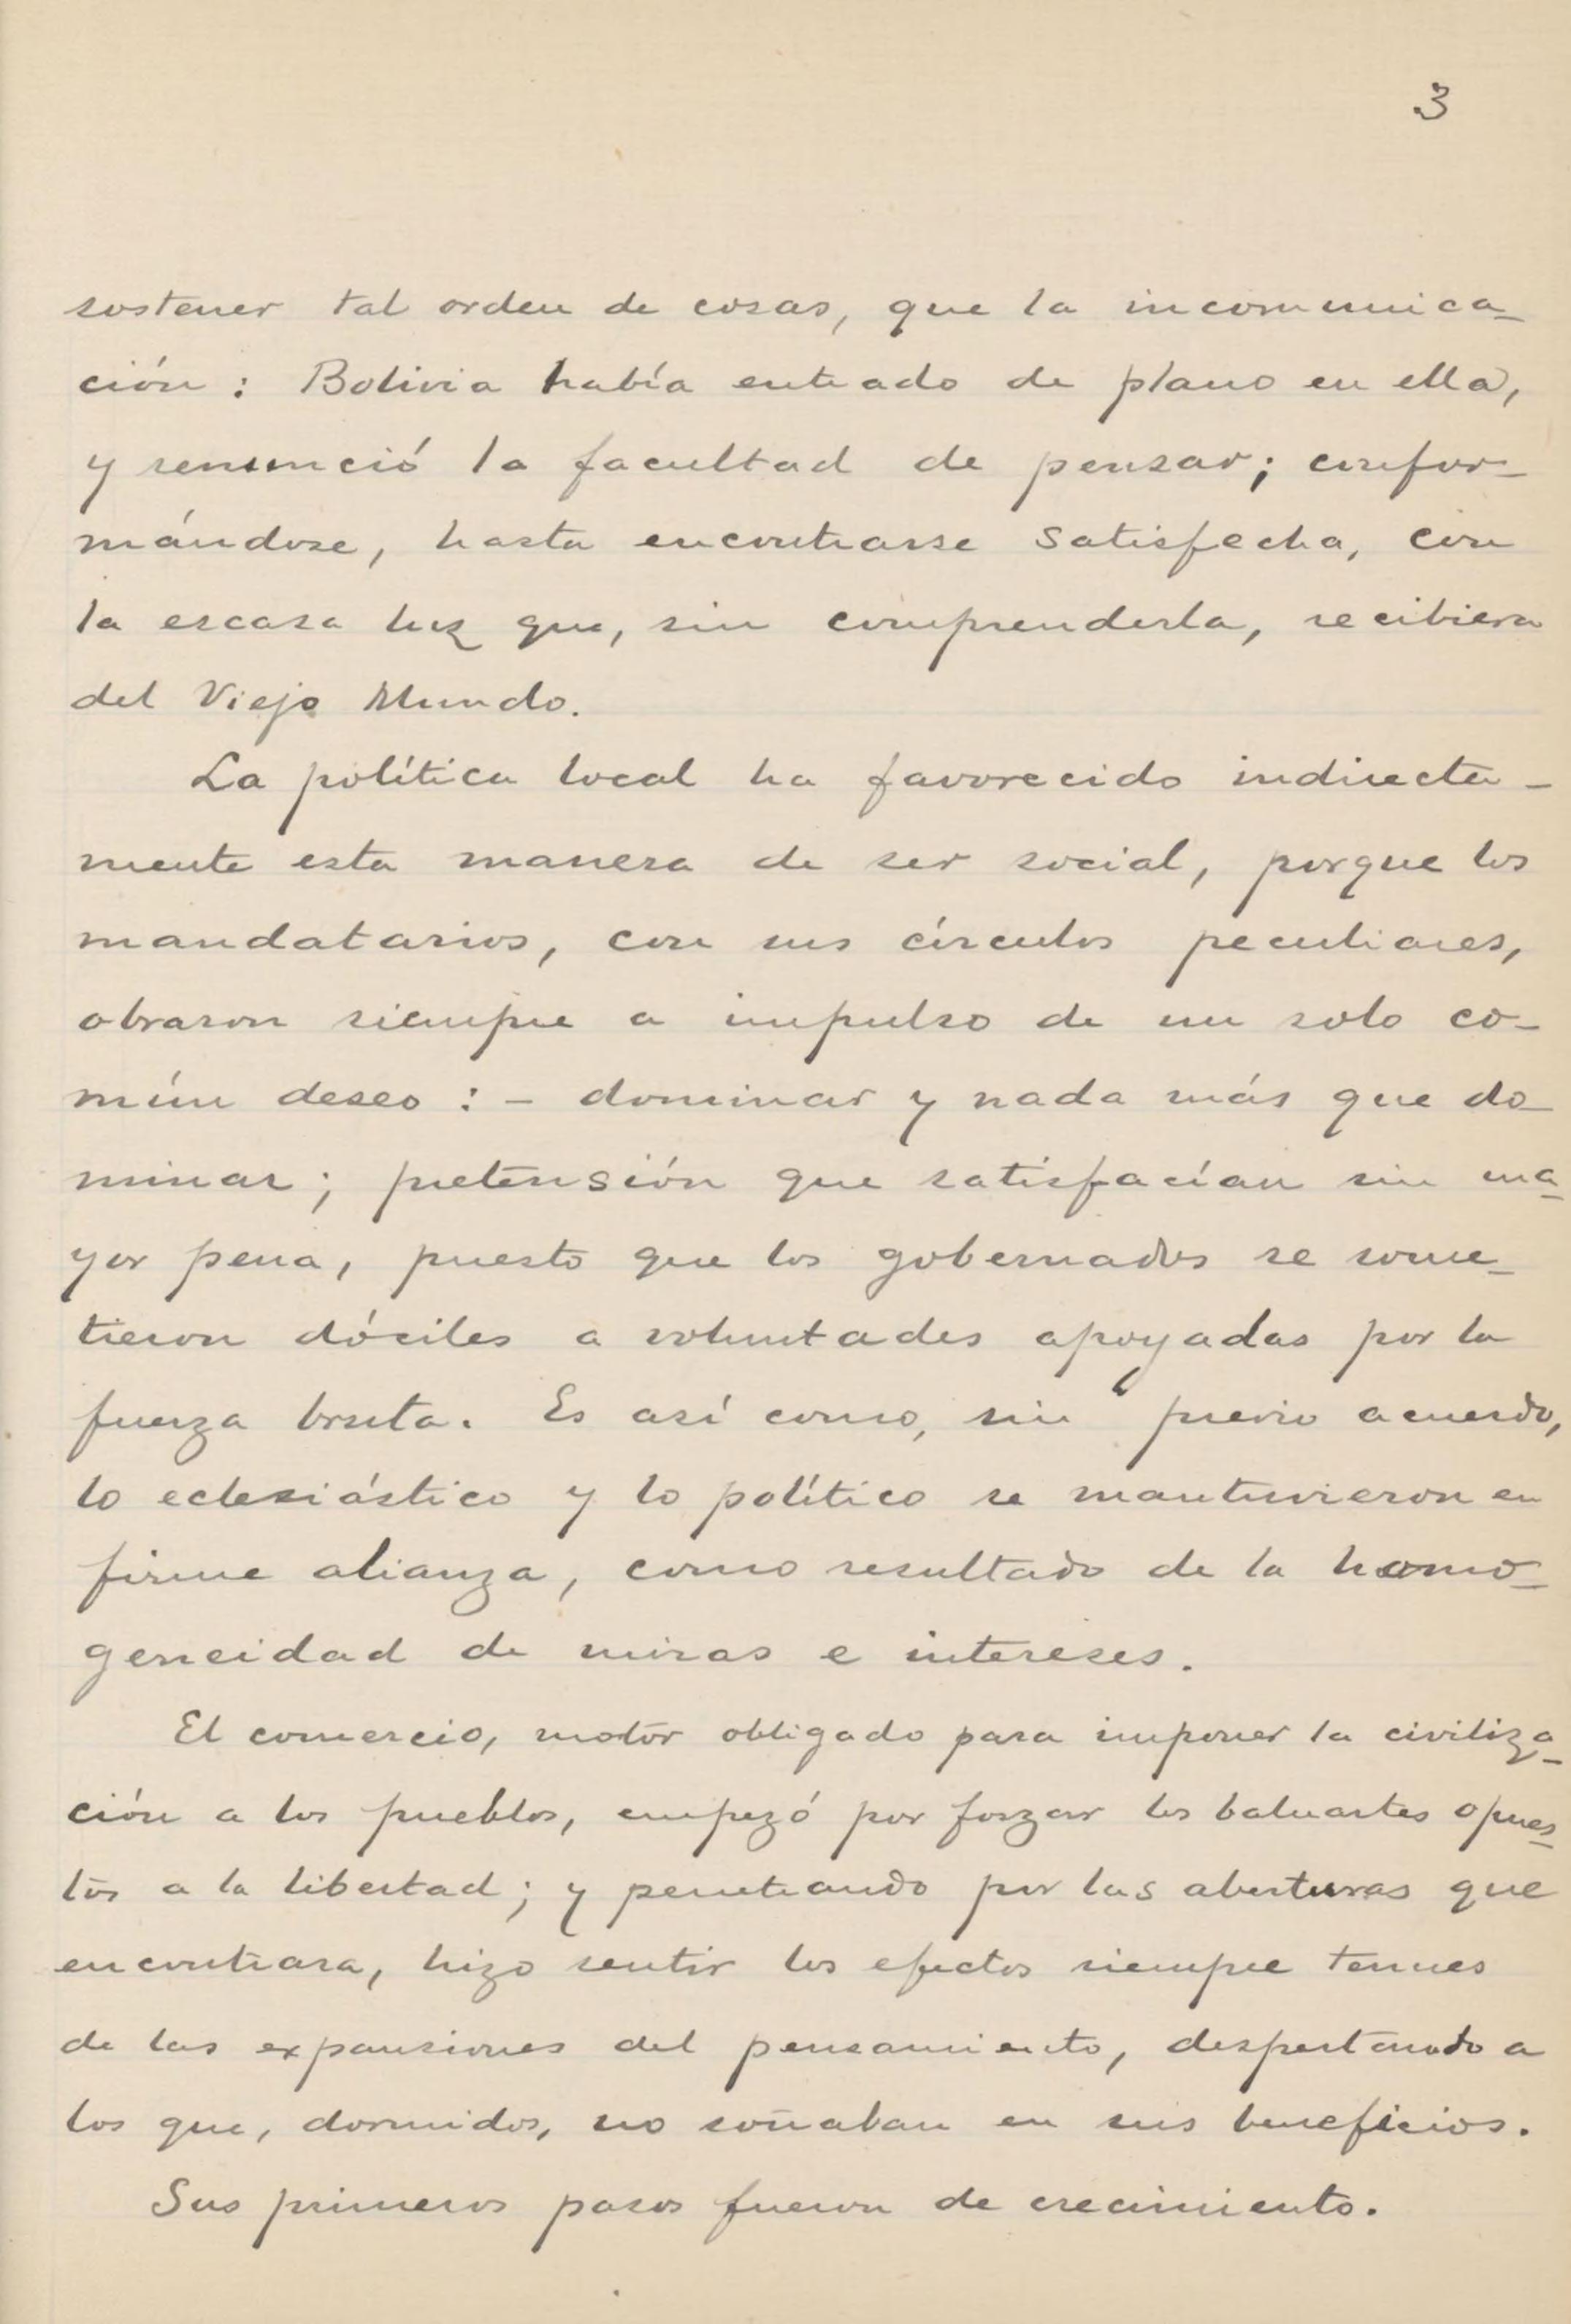 3
sostener tal orden de cosas, que la incomunica-
ción: Bolivia había entrado de plano en ella,
y renunció la facultad de pensar; confor-
mándose, hasta encontrarse satisfecha, con
la escasa luz que, sin comprenderla, recibiera
del Viejo Mundo.
La política local ha favorecido indirecta-
mente esta manera de ser social, porque los
mandatarios, con sus círculos peculiares,
obraron siempre a impulso de un solo co-
mún deseo: - dominar y nada más que do-
minar; pretensión que satisfacían sin ma-
yor pena, puesto que los gobernados se some-
tieron dóciles a voluntades apoyadas por la
fuerza bruta. Es así como, sin previo acuerdo,
lo eclesiástico y lo político se mantuvieron en
firme alianza, como resultado de la homo-
geneidad de miras e intereses.
El comercio, motor obligado para imponer la civiliza-
ción a los pueblos, empezó por forzar los baluartes opues-
tos a la libertad; y penetrando por las aberturas que
encontrara, hizo sentir los efectos siempre tenues
de las expansiones del pensamiento, despertando a
los que, dormidos, no soñaban en sus beneficios.
Sus primeros pasos fueron de crecimiento.